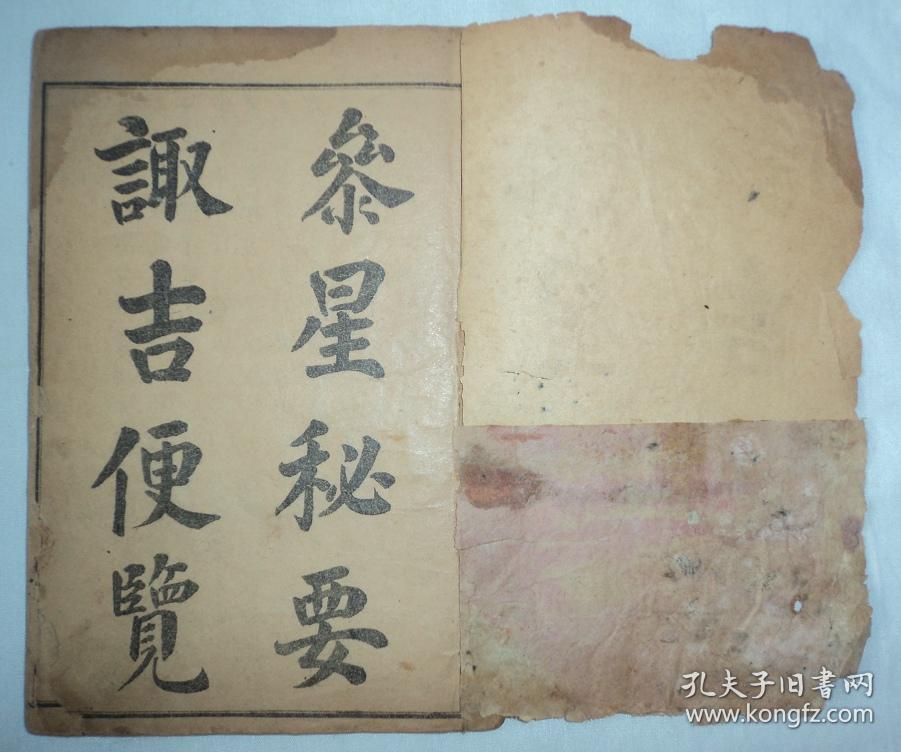 叅星秘要
諏吉便覽
孔夫子旧書网
www.kongfz.com